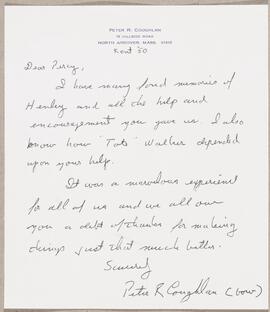 PETER R. COUGHLAN
15 HILLSIDE ROAD
NORTH ANDOVER, MASS. 01845
Kent '50
Dear Percy,
I have many fond memories of
Henley and all the help and
encouragement you gave us. I also
know how "Tote" Walker depended
upon your help.
It was a marvelous experience
for all of us and we all owe
you a debt of thanks for making
things just that much better.
Sincerely
Peter R Coughlan (bow)